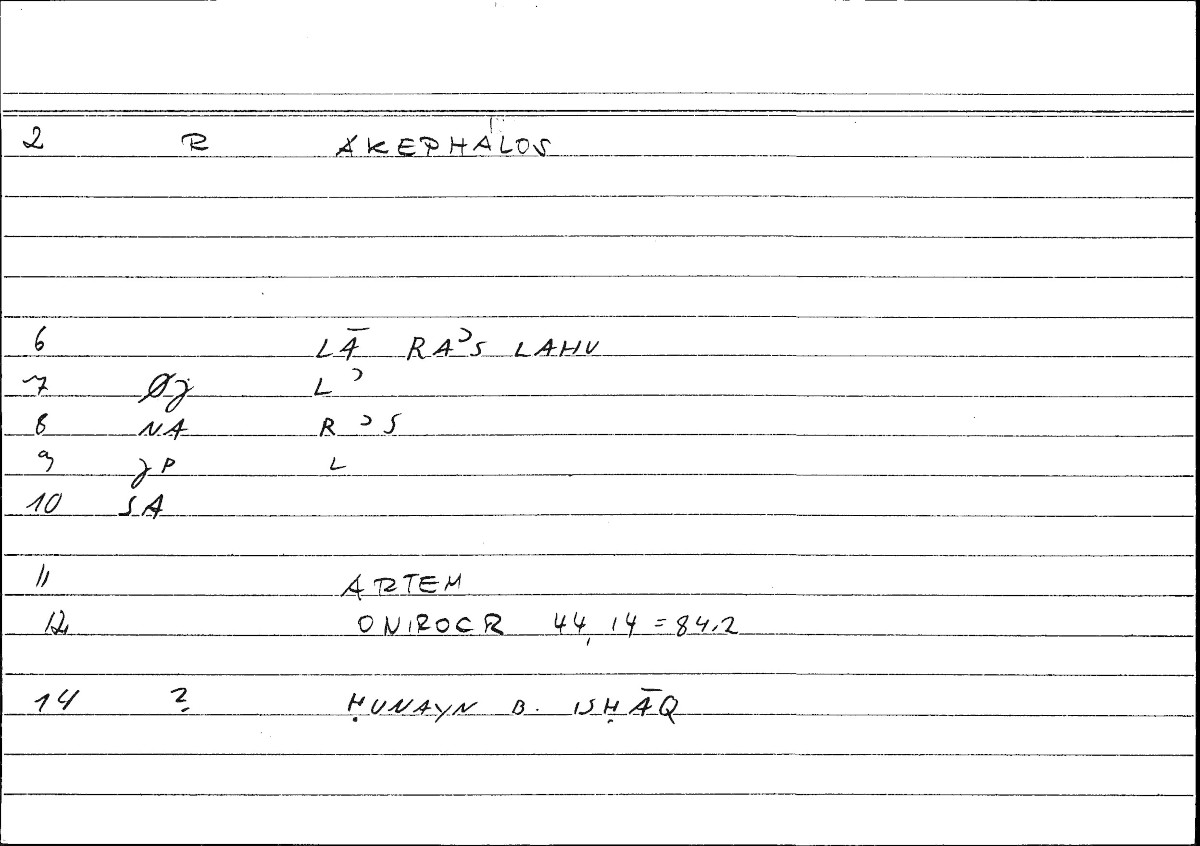 2 R AKEPHALOS
6 LĀ RAʾS LAHU
7 Øj L ʾ
8 NA R ʾ S
9 jP L
10 SA
11 ARTEM
12 ONIROCR 44,14 = 84.2
14 ? ḤUNAYN B. ISḤĀQ